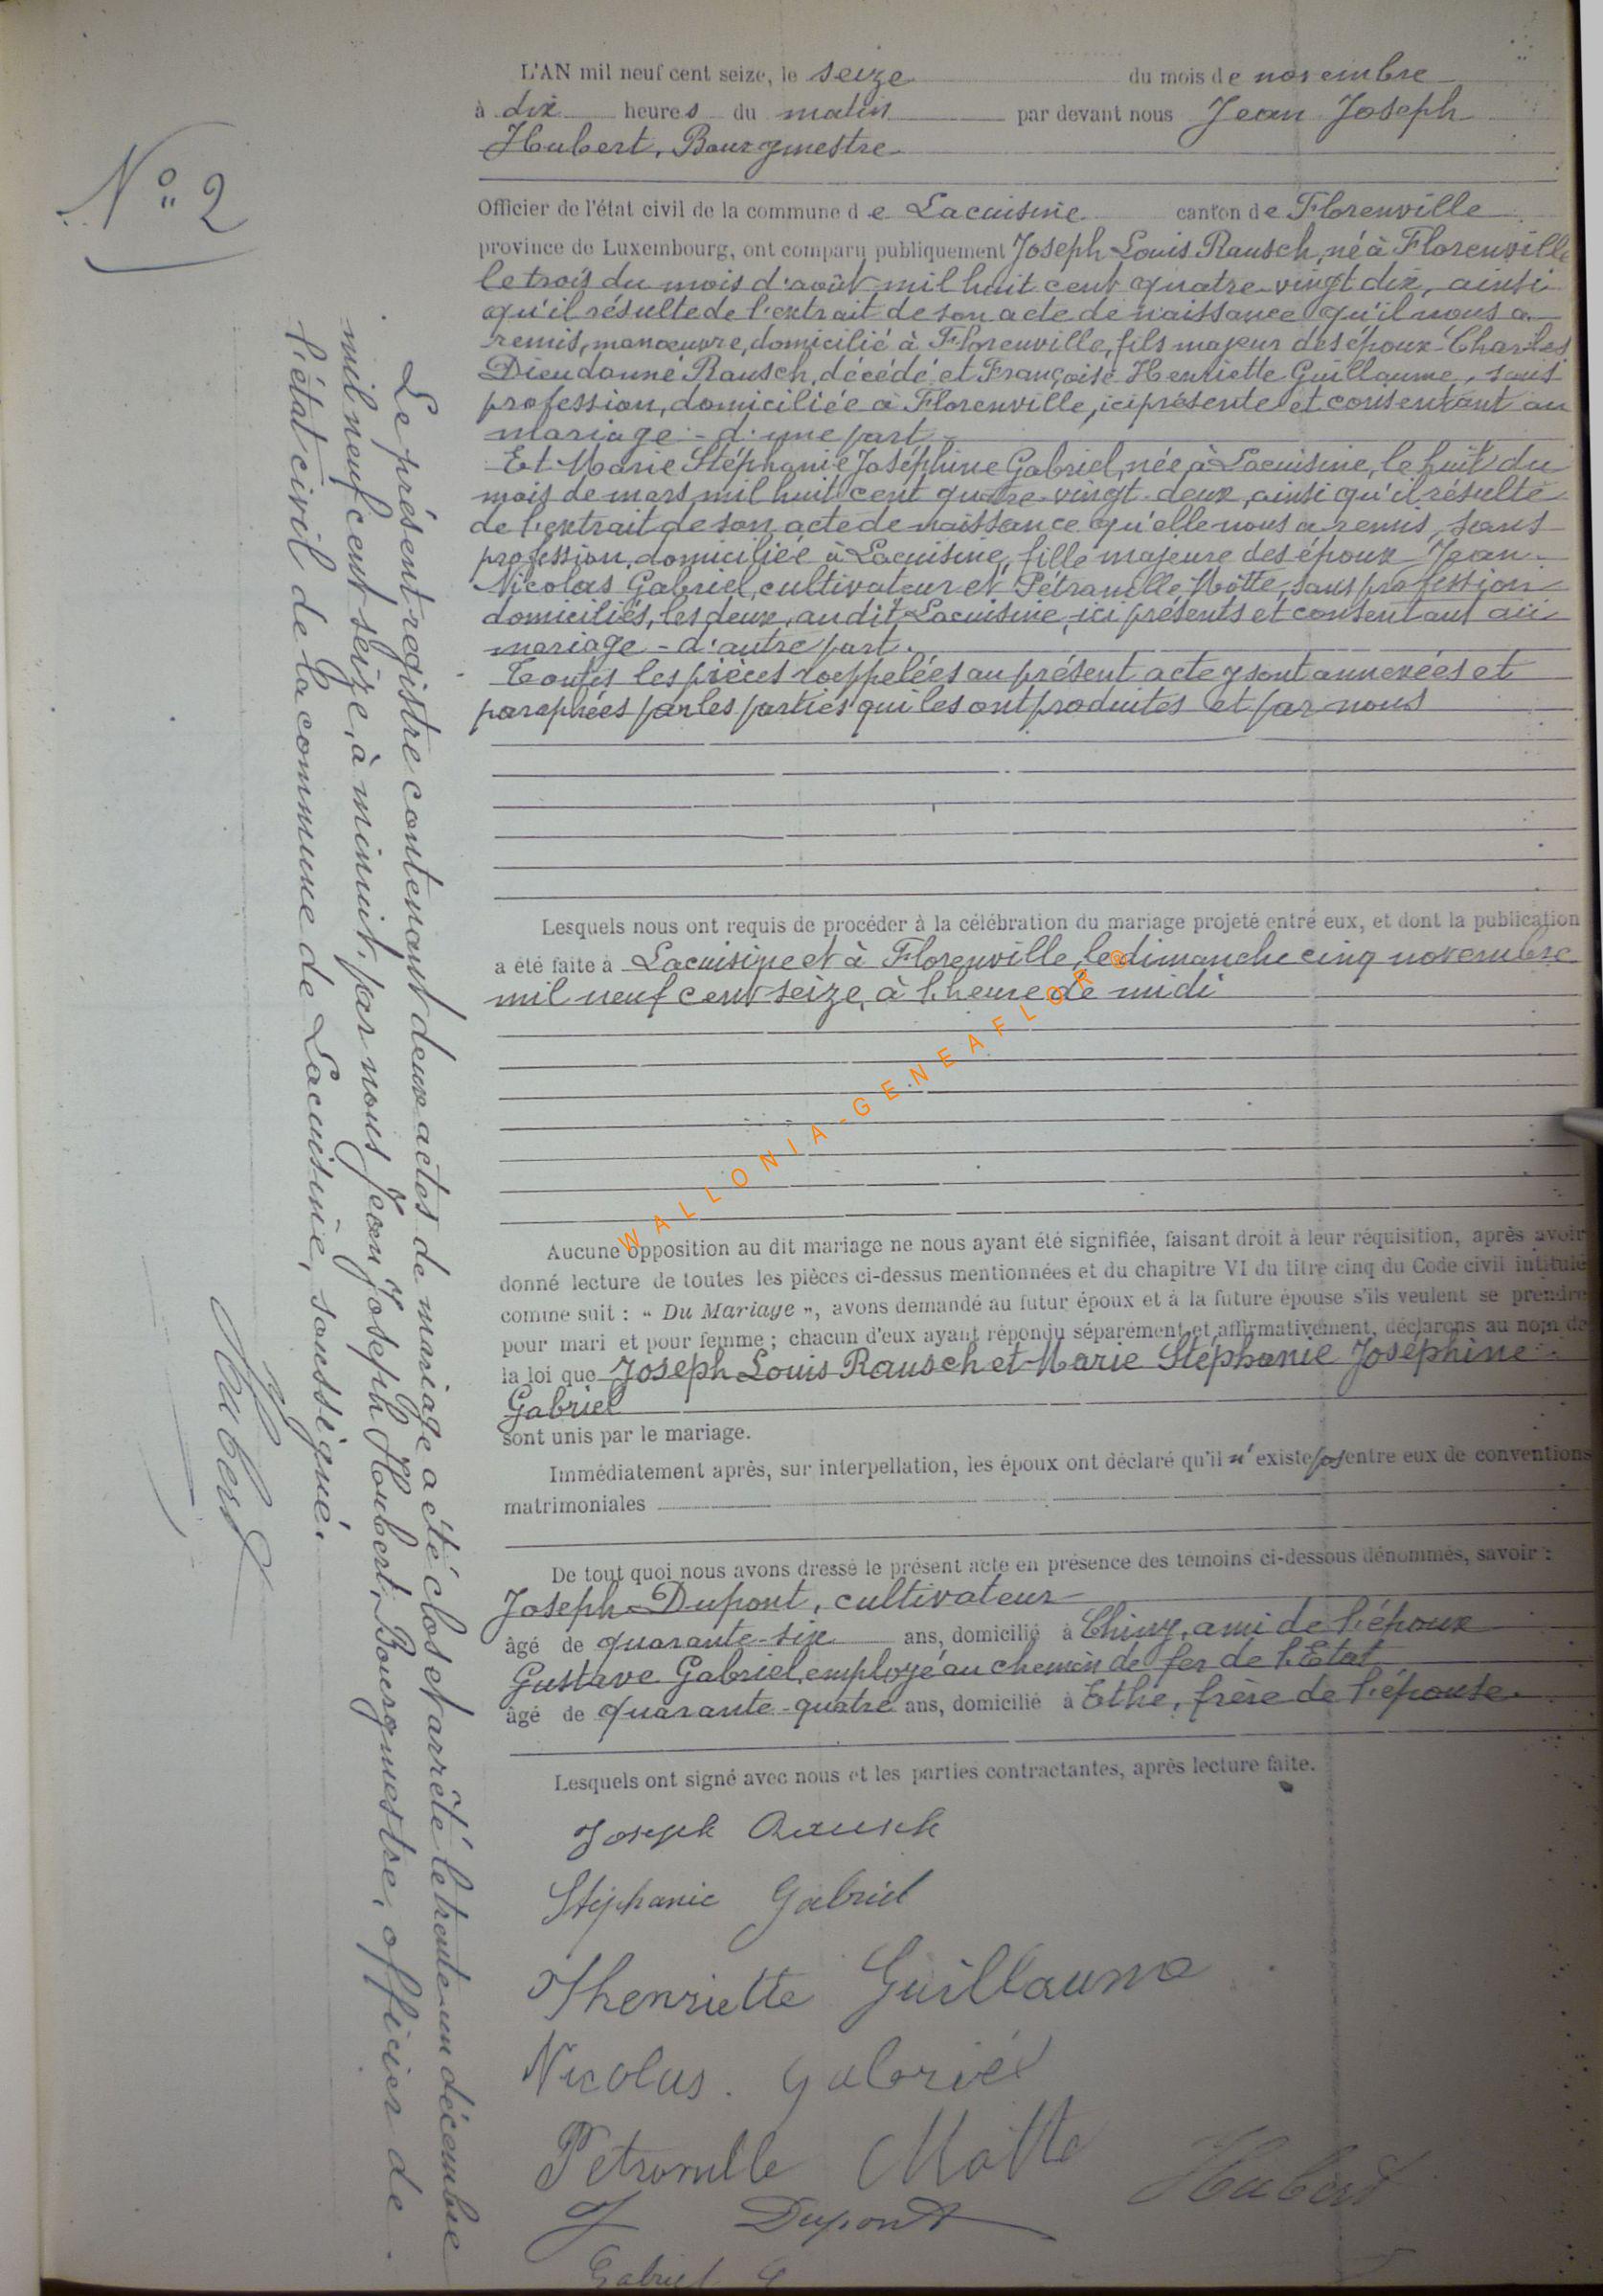 N° 2
L'AN mil neuf cent seize, le seize du mois de novembre
à dix heures du matin par devant nous Jean Joseph
Hubert, Bourgmestre
Officier de l'état civil de la commune de Lacuisine canton de Florenville
province de Luxembourg, ont comparu publiquement Joseph Louis Rausch, né à Florenville
le trois du mois d'août mil huit cent quatre-vingt dix, ainsi
qu'il résulte de l'extrait de son acte de naissance qu'il nous a
remis, manœuvre, domicilié à Florenville, fils majeur des époux Charles
Dieudonné Rausch, décédé et Françoise Henriette Guillaume, sans
profession, domiciliée à Florenville, ici présente et consentant au
mariage - d'une part.
Et Marie Stéphanie Joséphine Gabriel, née à Lacuisine, le huit du
mois de mars mil huit cent quatre-vingt-deux, ainsi qu'il résulte
de l'extrait de son acte de naissance qu'elle nous a remis, sans
profession, domiciliée à Lacuisine, fille majeure des époux Jean
Nicolas Gabriel, cultivateur et Pétronille Motte, sans profession
domiciliés, les deux, au dit Lacuisine, ici présents et consentant au
mariage - d'autre part.
Toutes les pièces rappelées au présent acte y sont annexées et
paraphées par les parties qui les ont produites et par nous
Lesquels nous ont requis de procéder à la célébration du mariage projeté entre eux, et dont la publication
a été faite à Lacuisine et à Florenville, le dimanche cinq novembre
mil neuf cent seize, à l'heure de midi
WALLONIA-GENEAFLOR®
Aucune opposition au dit mariage ne nous ayant été signifiée, faisant droit à leur réquisition, après avoir
donné lecture de toutes les pièces ci-dessus mentionnées et du chapitre VI du titre cinq du Code civil intitulé
comme suit : « Du Mariage », avons demandé au futur époux et à la future épouse s'ils veulent se prendre
pour mari et pour femme ; chacun d'eux ayant répondu séparément et affirmativement, déclarons au nom de
la loi que Joseph Louis Rausch et Marie Stéphanie Joséphine
Gabriel
sont unis par le mariage.
Immédiatement après, sur interpellation, les époux ont déclaré qu'il n'existe pas entre eux de conventions
matrimoniales
De tout quoi nous avons dressé le présent acte en présence des témoins ci-dessous dénommés, savoir :
Joseph Dupont, cultivateur
âgé de quarante-six ans, domicilié à Chiny, ami de l'époux
Gustave Gabriel, employé au chemin de fer de l'Etat
âgé de quarante-quatre ans, domicilié à Ethe, frère de l'épouse.
Lesquels ont signé avec nous et les parties contractantes, après lecture faite.
Joseph Rausch
Stéphanie Gabriel
Henriette Guillaume
Nicolas. Gabriel
Petronille Motte
Hubert
J Dupont
Gabriel G
Le présent registre contenant deux actes de mariage a été clos et arrêté le trente-un décembre
mil neuf cent seize, à minuit, par nous Jean Joseph Hubert, Bourgmestre, officier de
l'état civil de la commune de Lacuisine, soussigné.
Hubert